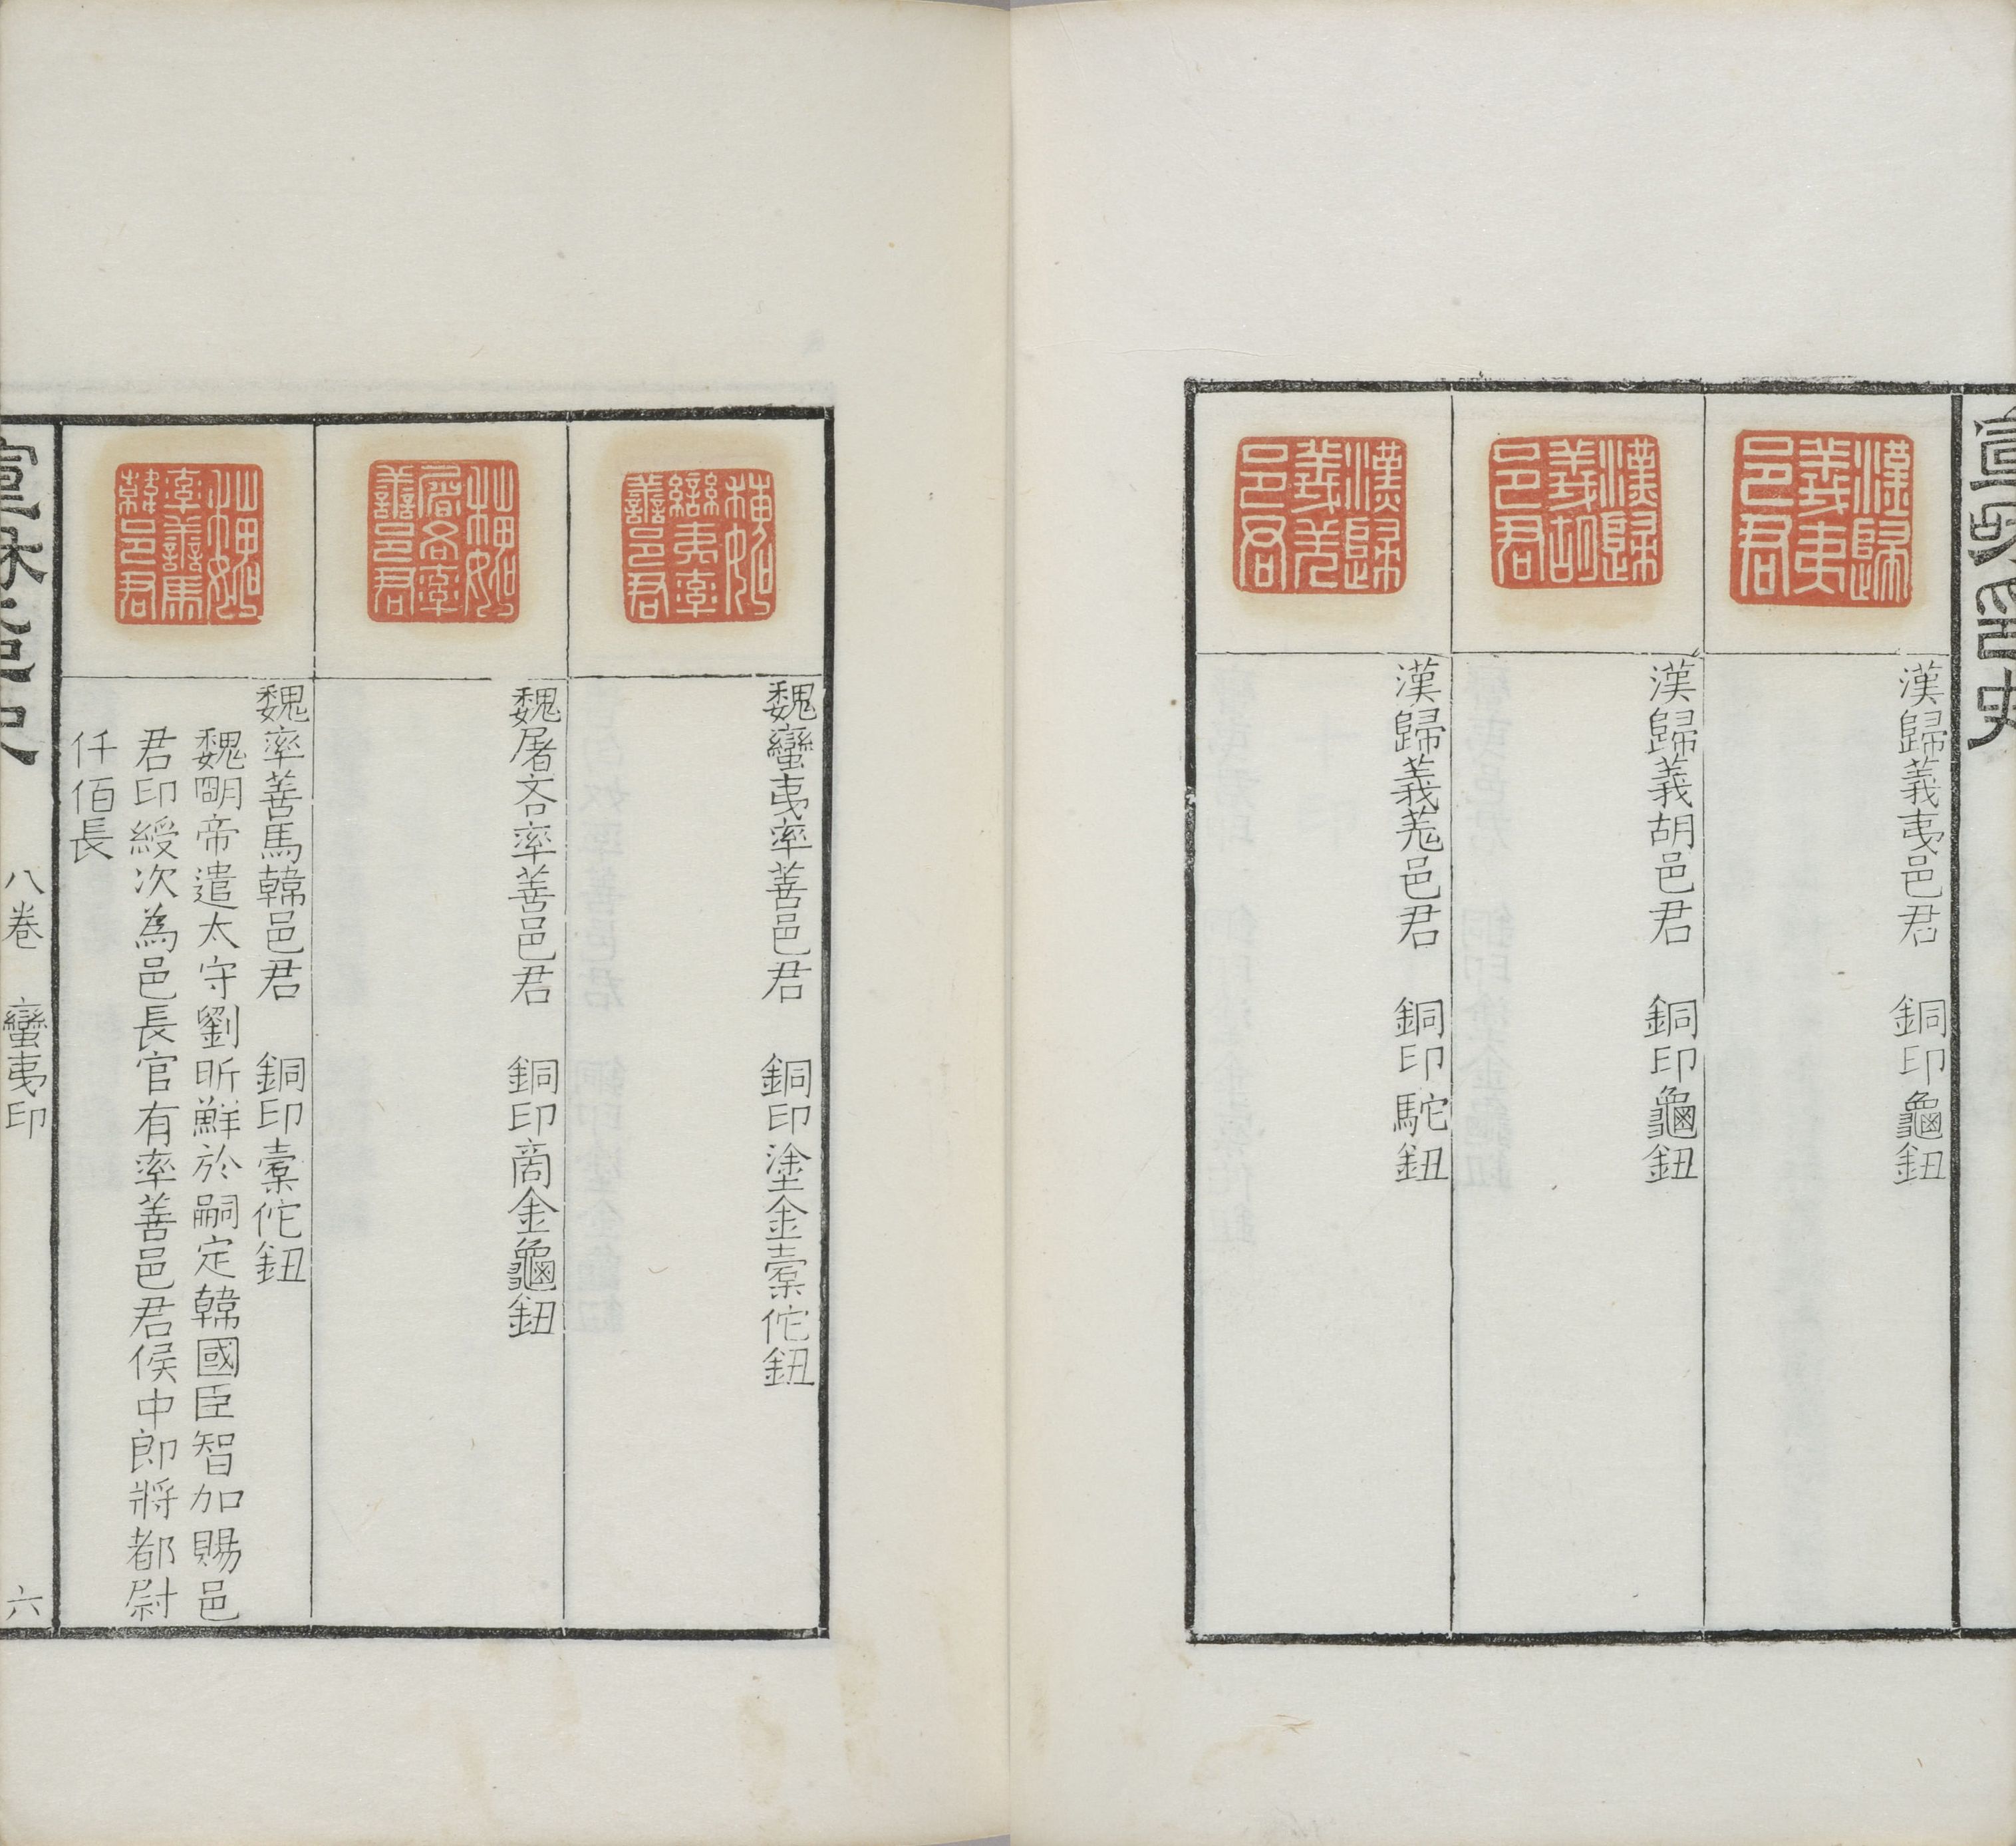 漢歸義夷邑君
漢歸義夷邑君　銅印龜鈕
漢歸義胡邑君
漢歸義胡邑君　銅印龜鈕
漢歸義羌邑君
漢歸義羌邑君　銅印駝鈕
魏蠻夷率善邑君
魏蠻夷率善邑君　銅印塗金橐佗鈕
魏屠各率善邑君
魏屠各率善邑君　銅印啇金龜鈕
魏率善馬韓邑君
魏率善馬韓邑君　銅印橐佗鈕
魏朙帝遣太守劉昕鮮於嗣定韓國臣智加賜邑
君印綬次為邑長官有率善邑君侯中郎將都尉
仟佰長
八卷　蠻夷印　六